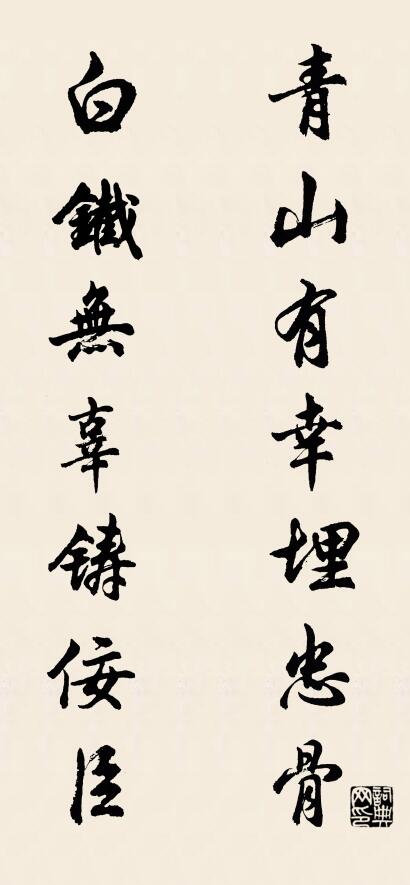 青山有幸埋忠骨
白鐵無辜鋳佞臣
詞典网印